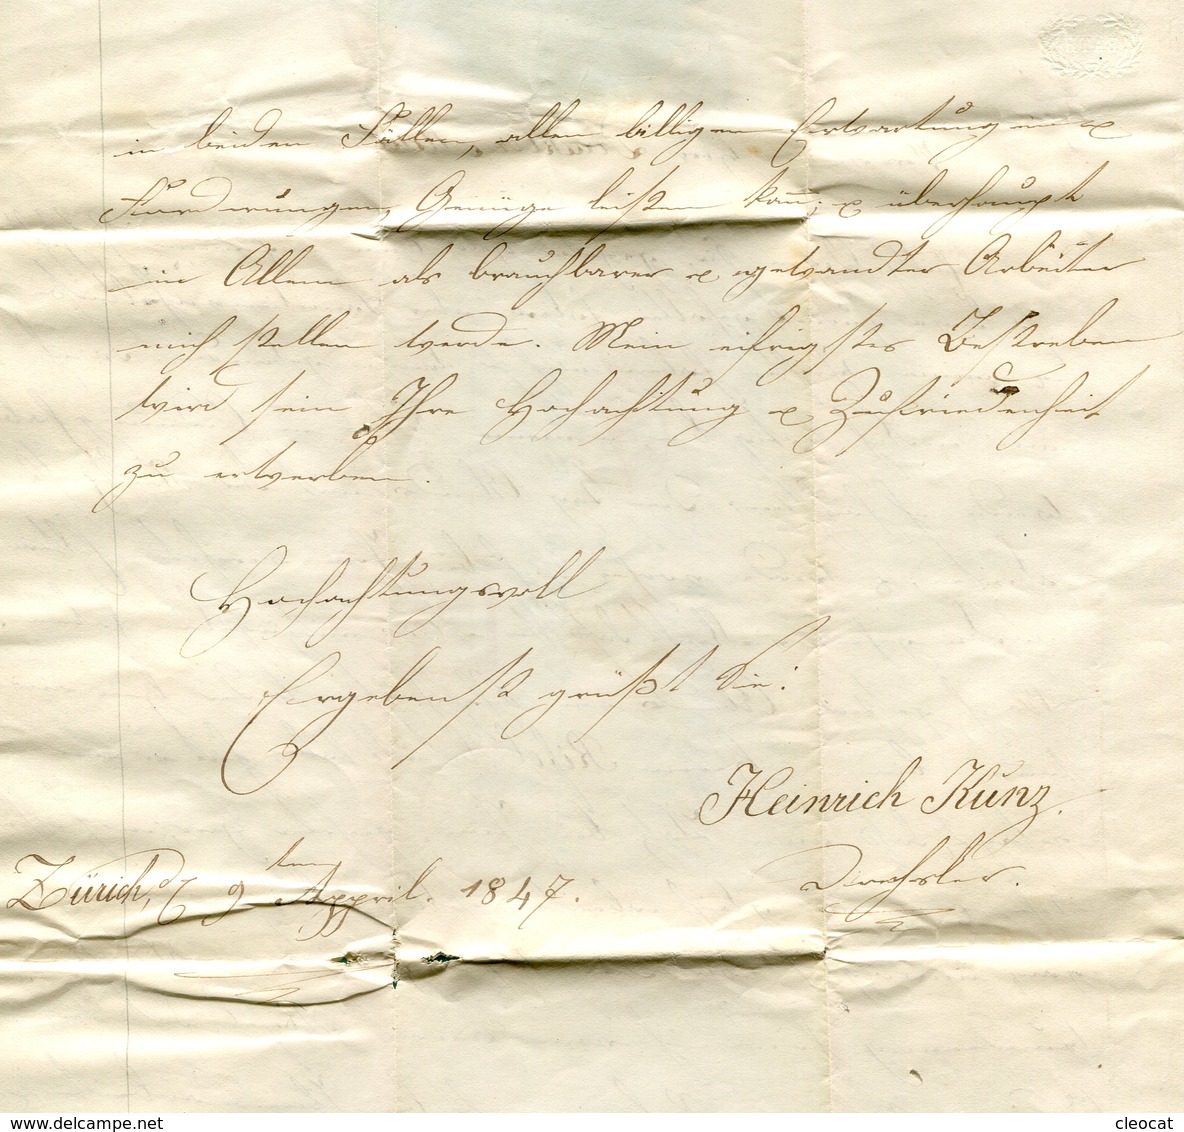 in beiden Fällen, allen billigen Erwartungen &
Fordrungen, Genüge leisten kann; & überhaupt
in Allem als brauchbarer & gewandter Arbeiter
mich stellen werde. Mein eifrigstes Bestreben
wird sein Ihre Hochachtung & Zufriedenheit
zu erwerben.
Hochachtungsvoll
Ergebenst grüßt Sie:
Heinrich Kunz.
Drechsler.
Zürich, d. 9ten Appril. 1847.
cleocat
www.delcampe.net